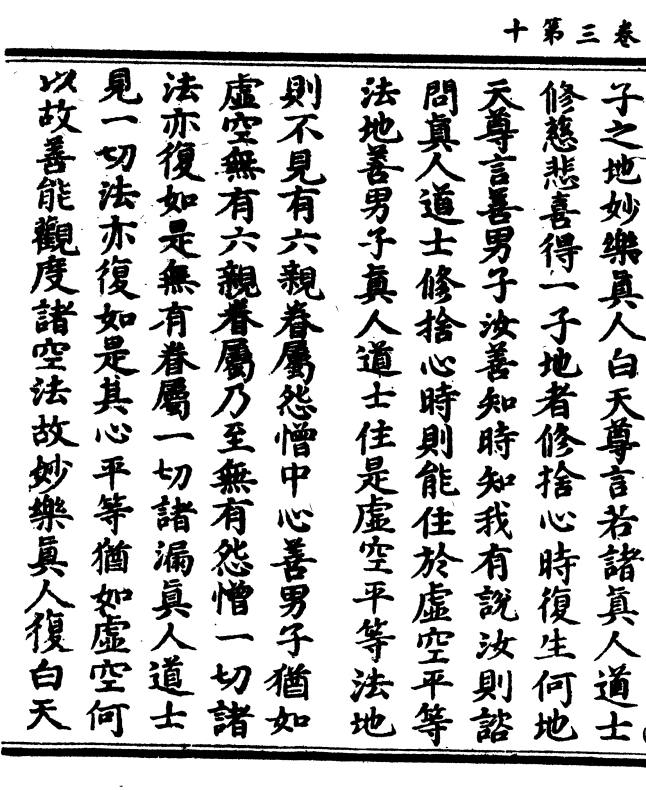 卷三第十
子之地妙樂眞人白天尊言若諸眞人道士
修慈悲喜得一子地者修捨心時復生何地
天尊言善男子汝善知時知我有說汝則諮
問眞人道士修捨心時則能住於虛空平等
法地善男子眞人道士住是虛空平等法地
則不見有六親眷屬怨憎中心善男子猶如
虛空無有六親眷屬乃至無有怨憎一切諸
法亦復如是無有眷屬一切諸漏眞人道士
見一切法亦復如是其心平等猶如虛空何
以故善能觀度諸空法故妙樂眞人復白天